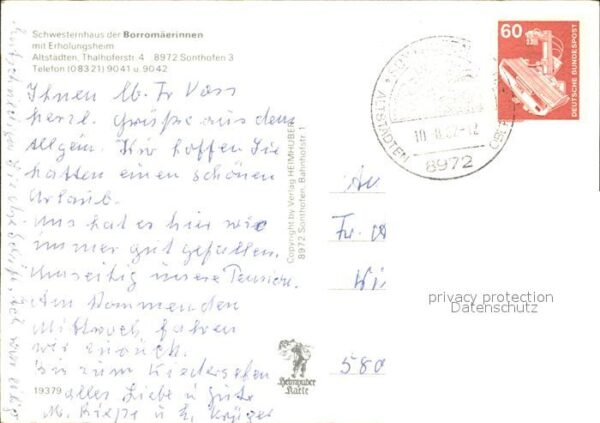 Schwesternhaus der Borromäerinnen
mit Erholungsheim
Altstädten, Thalhoferstr. 4 8972 Sonthofen 3
Telefon (08321) 9041 u. 9042
Ihnen lb. Fr. Vass
herzl. Grüße aus dem
Allgäu. Wir hoffen Sie
hatten einen schönen
Urlaub.
Uns hat es hier wie
immer gut gefallen.
Umseitig unsere Pension.
Am kommenden
Mittwoch fahren
wir zurück.
Bis zum Wiedersehen
alles Liebe u. Gute
M. Kiepe u. E. Krüger
19379
Copyright by Verlag HEIMHUBER
8972 Sonthofen, Bahnhofstr. 1
Heimhuber
Karte
60
DEUTSCHE BUNDESPOST
ALTSTÄDTEN
8972
An
Fr.
Wi
580
privacy protection
Datenschutz